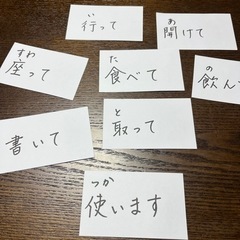 い
行って
あ
開けて
すわ
座って
た
食べて
の
飲ん
書いて
と
取って
つか
使います